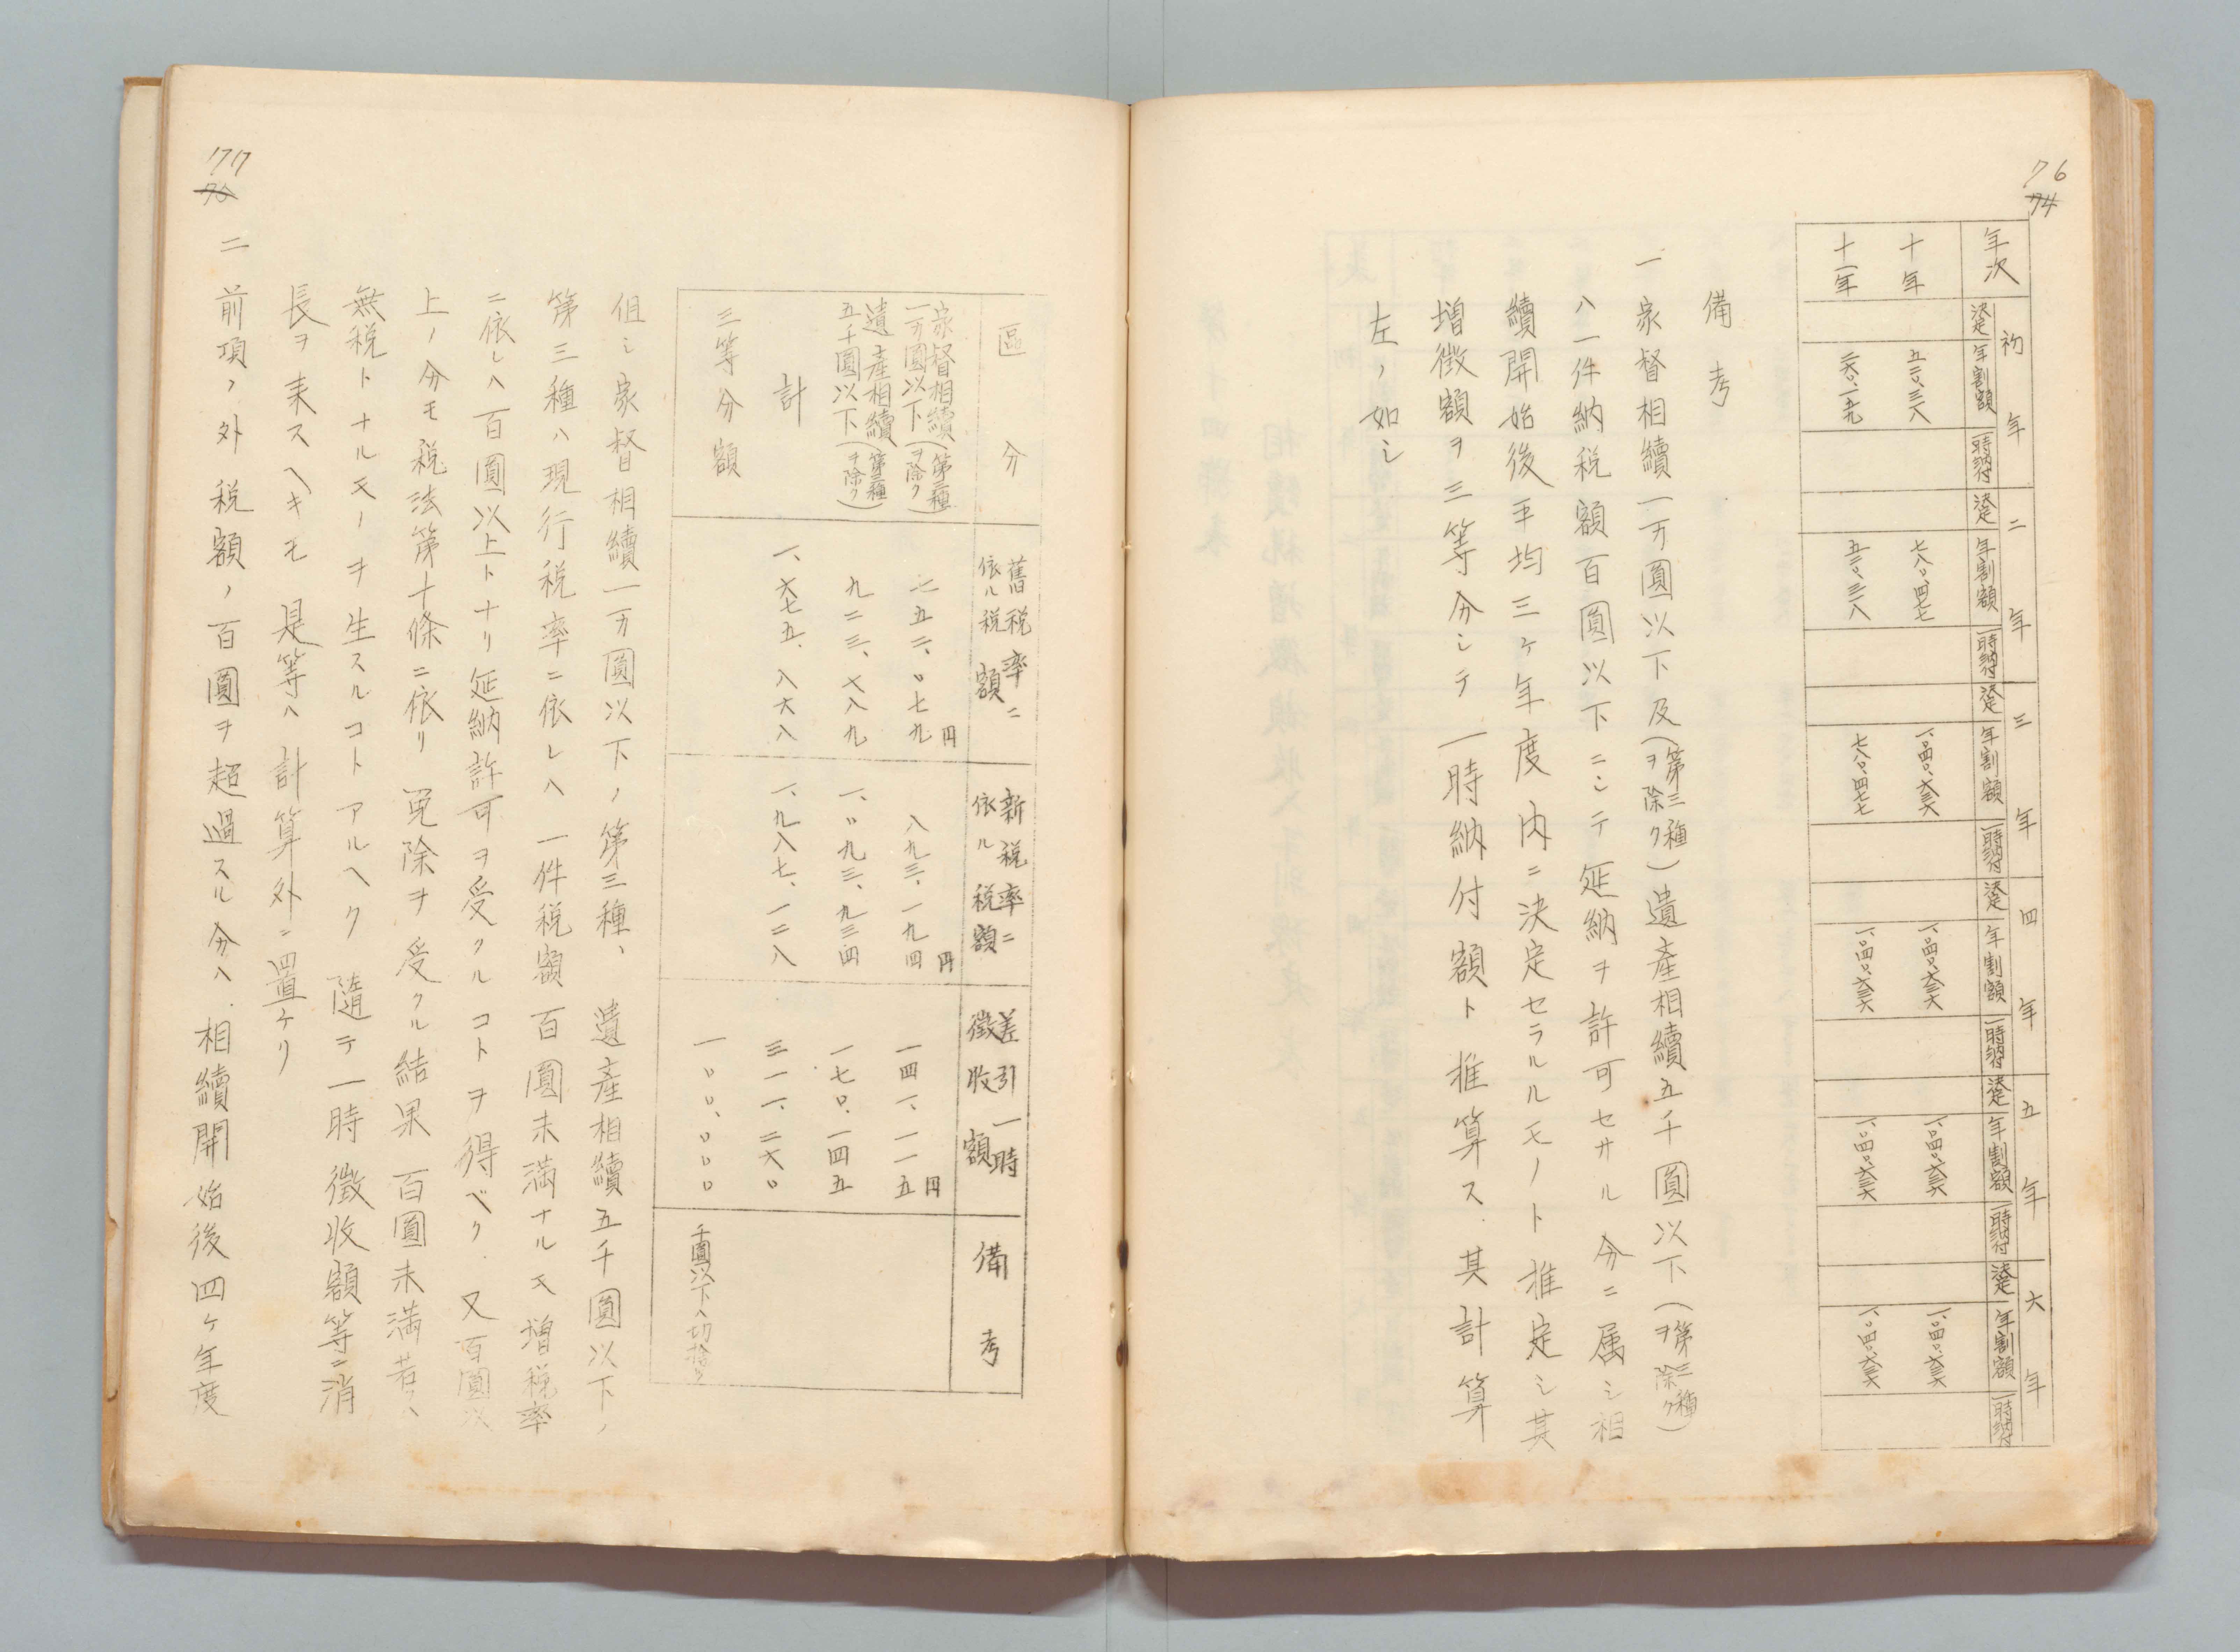 76
74
年次 初年 二年 三年 四年 五年 六年
決定年割額 一時納付 決定年割額 一時納付 決定年割額 一時納付 決定年割額 一時納付 決定年割額 一時納付 決定年割額 一時納付
十年 五二〇、三一八 七八〇、四七七 一、〇四〇、六三六 一、〇四〇、六三六 一、〇四〇、六三六 一、〇四〇、六三六
十一年 二六〇、一五九 五二〇、三一八 七八〇、四七七 一、〇四〇、六三六 一、〇四〇、六三六 一、〇四〇、六三六
備考
一 家督相續一万圓以下及(第三種ヲ除ク)遺産相續五千圓以下(第三種ヲ除ク)
ハ一件納税額百圓以下ニシテ延納ヲ許可セサル分ニ属シ相
續開始後平均三ヶ年度内ニ決定セラルルモノト推定シ其
増徴額ヲ三等分シテ一時納付額ト推算ス.其計算
左ノ如シ
區分 舊税率ニ依ル税額 新税率ニ依ル税額 差引一時徴收額 備考
家督相續一万圓以下(第三種ヲ除ク) 七五二、〇七九円 八九三、一九四円 一四一、一一五円
遺産相續五千圓以下(第三種ヲ除ク) 九二三、七八九 一、〇九三、九三四 一七〇、一四五
計 一、六七五、八六八 一、九八七、一二八 三一一、二六〇
三等分額 一〇〇、〇〇〇 千圓以下ハ切捨ク
但シ家督相續一万圓以下ノ第三種、遺産相續五千圓以下ノ
第三種ハ現行税率ニ依レハ一件税額百圓未満ナルモ増税率
ニ依レハ百圓以上トナリ延納許可ヲ受クルコトヲ得ベク.又百圓以
上ノ分モ税法第十條ニ依リ免除ヲ受クル結果百圓未満若ハ
無税トナルモノヲ生スルコトアルヘク隨テ一時徴收額等ニ消
長ヲ来スヘキモ是等ハ計算外ニ置ケリ
77
二 前項ノ外税額ノ百圓ヲ超過スル分ハ.相續開始後四ヶ年度